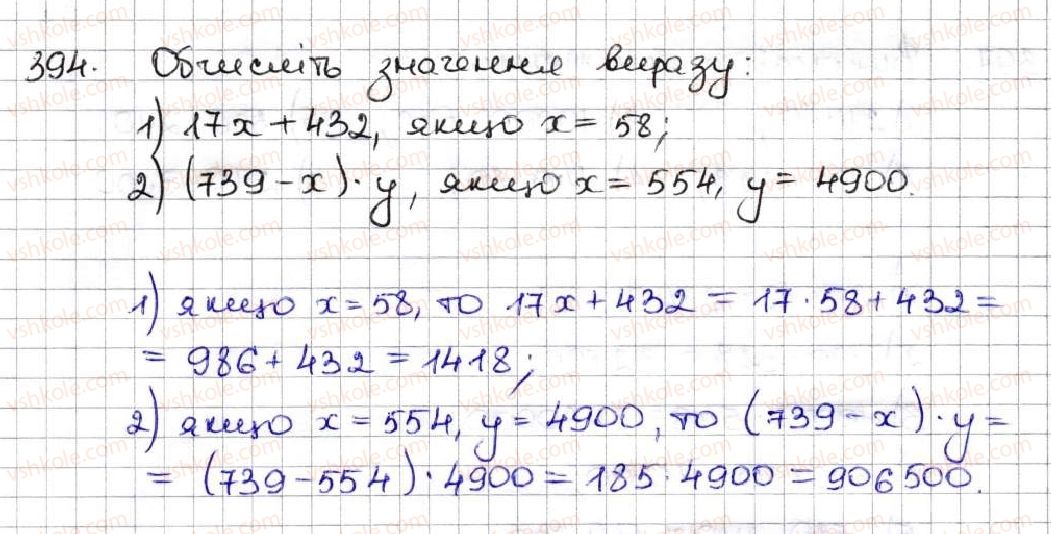 394. Обчисліть значення виразу:
1) 17x + 432, якщо x = 58;
2) (739 - x) · y, якщо x = 554, y = 4900.
1) якщо x = 58, то 17x + 432 = 17 · 58 + 432 =
= 986 + 432 = 1418;
2) якщо x = 554, y = 4900, то (739 - x) · y =
= (739 - 554) · 4900 = 185 · 4900 = 906500.